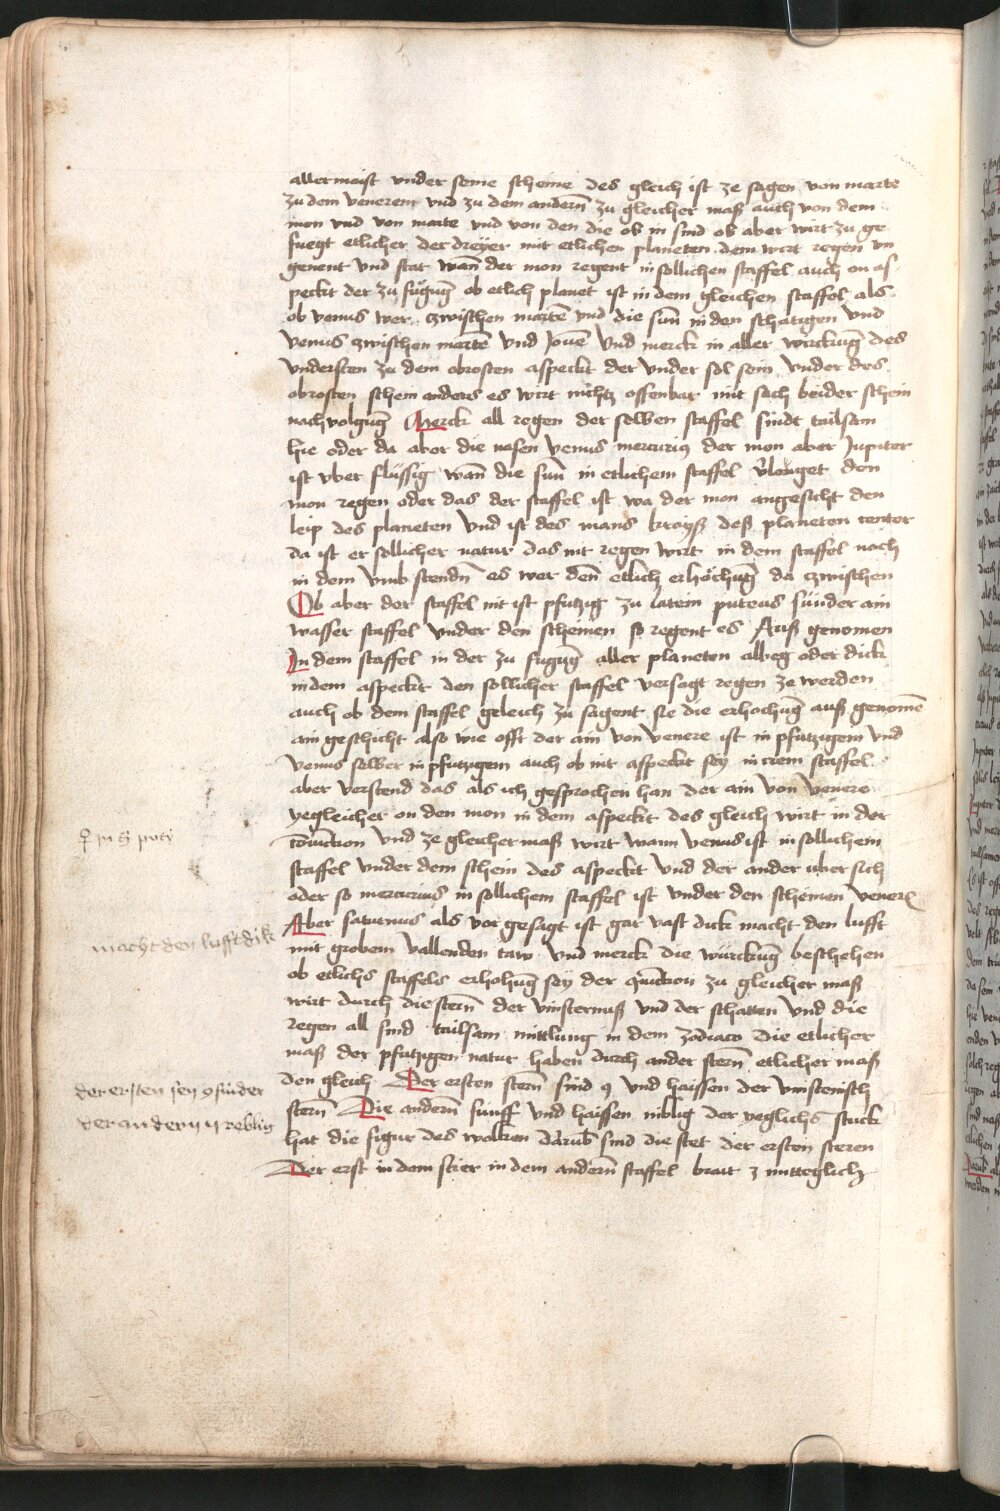 allermaist vnder seine scheine des gleich ist ze sagen von marte
zu dem venerem vnd zu dem andern̄ zu gleicher maß auch von dem
mon vnd von marte vnd von den die ob in sind ob aber wirt zu ge
fuegt etlicher der dreÿer mit etlichen planeten dem wirt regen vn
genent vnd stat wan̄ der mon regent in sollichen staffel auch on as
peckt der zu fügūg ob etlich planet ist in dem gleichen staffel als
ob venus wer zwischen martē vnd die sun̄ in den schatigen vnd
venus zwischen martē vnd Jouē vnd merck in aller wirckūg des
vndersten zu dem obrosten aspeckt der vnder sol sein vnder des
obrosten schein anders es wirt nichtz offenbar mit sach beider schein
nachvolgūg Merck all regen der selben staffel sindt tailsam
hie oder da aber die nasen venus mercuriꝰ der mon aber Jupiter
ist vber flüssig wan̄ die sun̄ in etlichem staffel v̄louget den
mon regen oder das der staffel ist wa der mon angesicht den
leip des planeten vnd ist des mans krayß deß planeten center
da ist er sollicher natur das nit regen wirt in dem staffel noch
in dem vmbstendn̄ es wer den̄ etlich erhöchūg da zwischen
Ob aber der staffel nit ist pfutzig zu latein puteus sunder ain
wasser staffel vnder den scheinen so regent es Auß genomen
In dem staffel in der zu fugūg aller planeten albeg oder dick
in dem aspeckt den sollicher staffel versagt regen ze werden
auch ob dem staffel geleich zu sagent sie die erhochūg auß genomē
ain geschicht also wie offt der ain von venere ist in pfutzigem vnd
venus selber in pfutzigem auch ob nit aspeckt sey in irem staffel
aber verstend das als ich gesprochen han der ain von venere
yegleicher on den mon in dem aspeckt des gleich wirt in der
cōiunction vnd ze gleicher maß wirt wann venus ist in sollichem
staffel vnder dem schein des aspeckt vnd der ander uber sich
oder so mercurius in sollichem staffel ist vnder den scheinen venere
♀ in ♄ putj
Aber saturnus als vor gesagt ist gar vast dick macht den lufft
macht den lufft dik
mit grobem vallenden taw vnd merck die würckūg beschehen
ob etlichs staffels erhohūg sey der cōiunction zu gleicher maß
wirt durch die stern̄ der vinsternuß vnd der schatten vnd die
regen all sind tailsam mittlung in dem zodiaco die etlicher
maß der pfutzigen natur haben durch ander stern̄ etlicher maß
den gleich Der ersten stern̄ sind 9 vnd haissen der vinsternisch
der ersten sen 9 finder
stern̄ Die andern̄ funff vnd haissen niblig der yeglichs stuck
der andern 5 neblig
hat die figur des wolken darūb sind die stet der ersten steren
Der erst in dem stier in dem andern̄ staffel brait 3 mitteglich